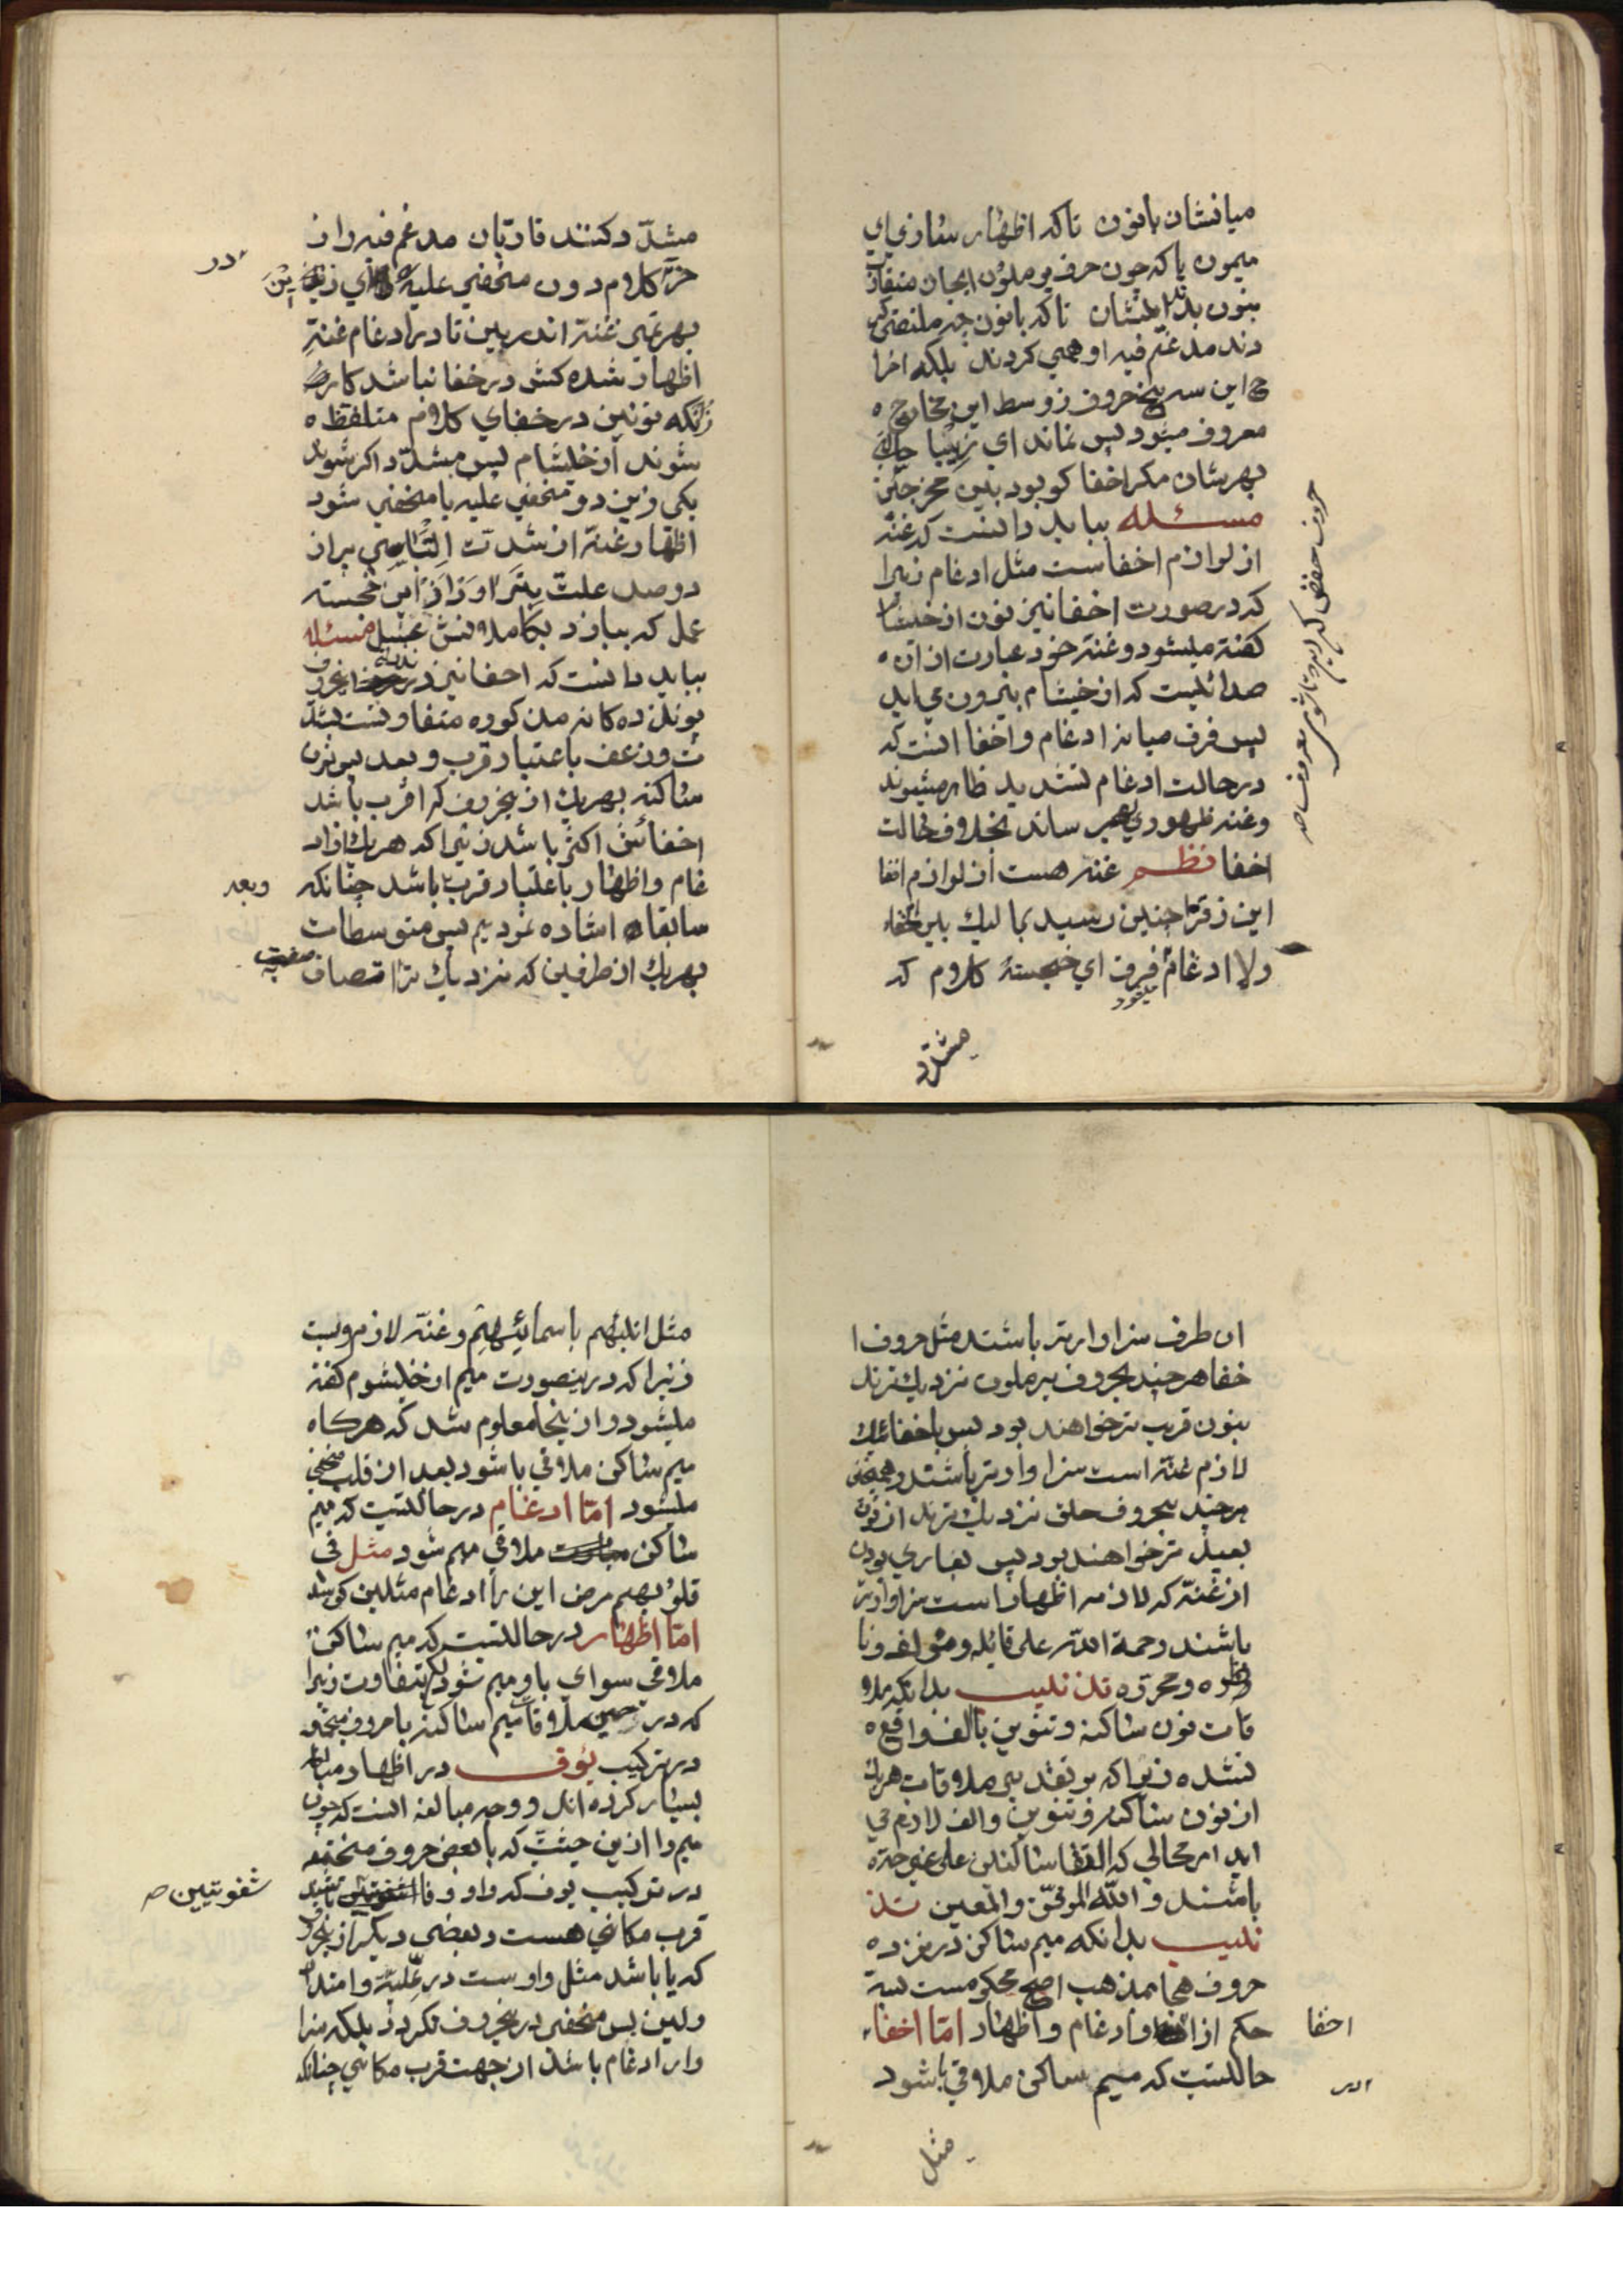 میانشان بانون تاکه اظهار سازی ای
میمون یا که چون حرف یرملون ایجان متقارب
بنون بد تا کنی بانون چه ملتقی کر
دند مدغم فیه او همی کردند بلکه اخرا
ج این سه پنج حروف ز وسط این مخارج ه
معروف میشود پس نماند ای زیبا
بهرشان مکر اخفا کو بود بین مخرجین
مسئله بباید دانست که غنه
از لوازم اخفاست مثل ادغام زیرا
که در صورت اخفا نیز نون از خیشام
کفته میشود و غنه خود عبارت از ان ه
صدائیست که از خیشام بیرون می اید
پس فرق میانه ادغام و اخفا اینست که
در حالت ادغام تشدید ظاهر میشوند
و غنه ظهوری هم رساند بخلاف حالت
اخفا نظم غنه هست از لوازم اخفا
این زقرا چنین رسید بما لیک بین اخفاء
ولا ادغام فرق ای خجسته کلام که
میشود
مشدد
مشدّد کنند قاریان مدغم فیه را ز
در
خرّ کلام دون مخفی علیه ای
بهر همی غنه اندرین تا در ادغام غنهِ
اظهار شده کش در خفا نباشد کار
زانکه نونین در خفای کلام متلفظ ه
شوند از خیشام پس مشدّد اکر شوند
یکی زین دو مخفی علیه یا مخفی شود
اظهار غنه از شدت
دوصد علت این خجسته
عمل که بیارد بکامل مسئله
بباید دانست که اخفا نیز در این حروف
پونزده کانه مذکوره متفاوتست بشد
ت و وزعف باعتبار قرب و بعد پس نون
ساکنه بهریک از ینحروف که اقرب باشد
اخفائش اکثر باشد زیرا که هریک از اد
غام و اظهار باعتبار قرب باشد چنانکه
وبعد
سابقا اشاره نمودیم پس متوسطات
بهریک از طرفین که نزدیک تر اتصاف
ان طرف سزاوارتر باشند مثل حروف ا
خفا هرچند بحروف یرملون نزدیک ترند
بنون قریب تر خواهند بود پس باخفائیکه
لازم غنه است سزاوارتر باشند و همچنین
هرچند بحروف حلق نزدیک ترند از نون
بعید تر خواهند بود پس بعاری بودن
از غنه که لازمه اظهار است سزاوارتر
باشند رحمة الله علی قائله و مؤلفه و نا
ظره و محرّره تذنیب بدانکه ملا
قات نون ساکنه و تنوین با الف واقع ه
نشده زیرا که بر تقدیر ملاقات هریک
از نون ساکنه و تنوین و الف لازم می
اید امر محالی که التقا ساکنین علی غیر حده
باشند و الله الموفّق و المعین تذ
نیب بدانکه میم ساکن در نزد ه
حروف هجا بمذهب اصح محکومست بسه
حکم از و ادغام و اظهار امّا اخفاء
اخفا
حالتیست که میم ساکن ملاقی باشود
مثل
مثل انبئهم باسمائِهِم و غنه لازم ویست
زیرا که درینصورت میم از خیشوم کفته
میشود و ازینجا معلوم شد که هرکاه
میم ساکن ملاقی باشود بعد از قلب مخفی
میشود امّا ادغام در حالتیست که میم
ساکن ملاقی میم شود مثل فی
قلوبهم مرض این را ادغام مثلین کویند
امّا اظهار در حالتیست که میم ساکن
ملاقی سوای با و میم شود بتفاوت زیرا
که در حین ملاقات میم ساکنه با حروف مجتمعه
در ترکیب یوف در اظهار مبالغه
بسیار کرده اند و وجه مبالغه اینست که چون
میم را ازین حیثیّت که با بعض حروف مجتمعه
در ترکیب یوف که واو و فا باشد
شفویتین صح
قرب مکانی هست و بعضی دیکر از ینحروف
که یا باشد مثل واوست در علیّة و امتداد
ولین پس مخفی در ینحروف نکردد بلکه سزا
وار ادغام باشد از جهت قرب مکانی چنانکه